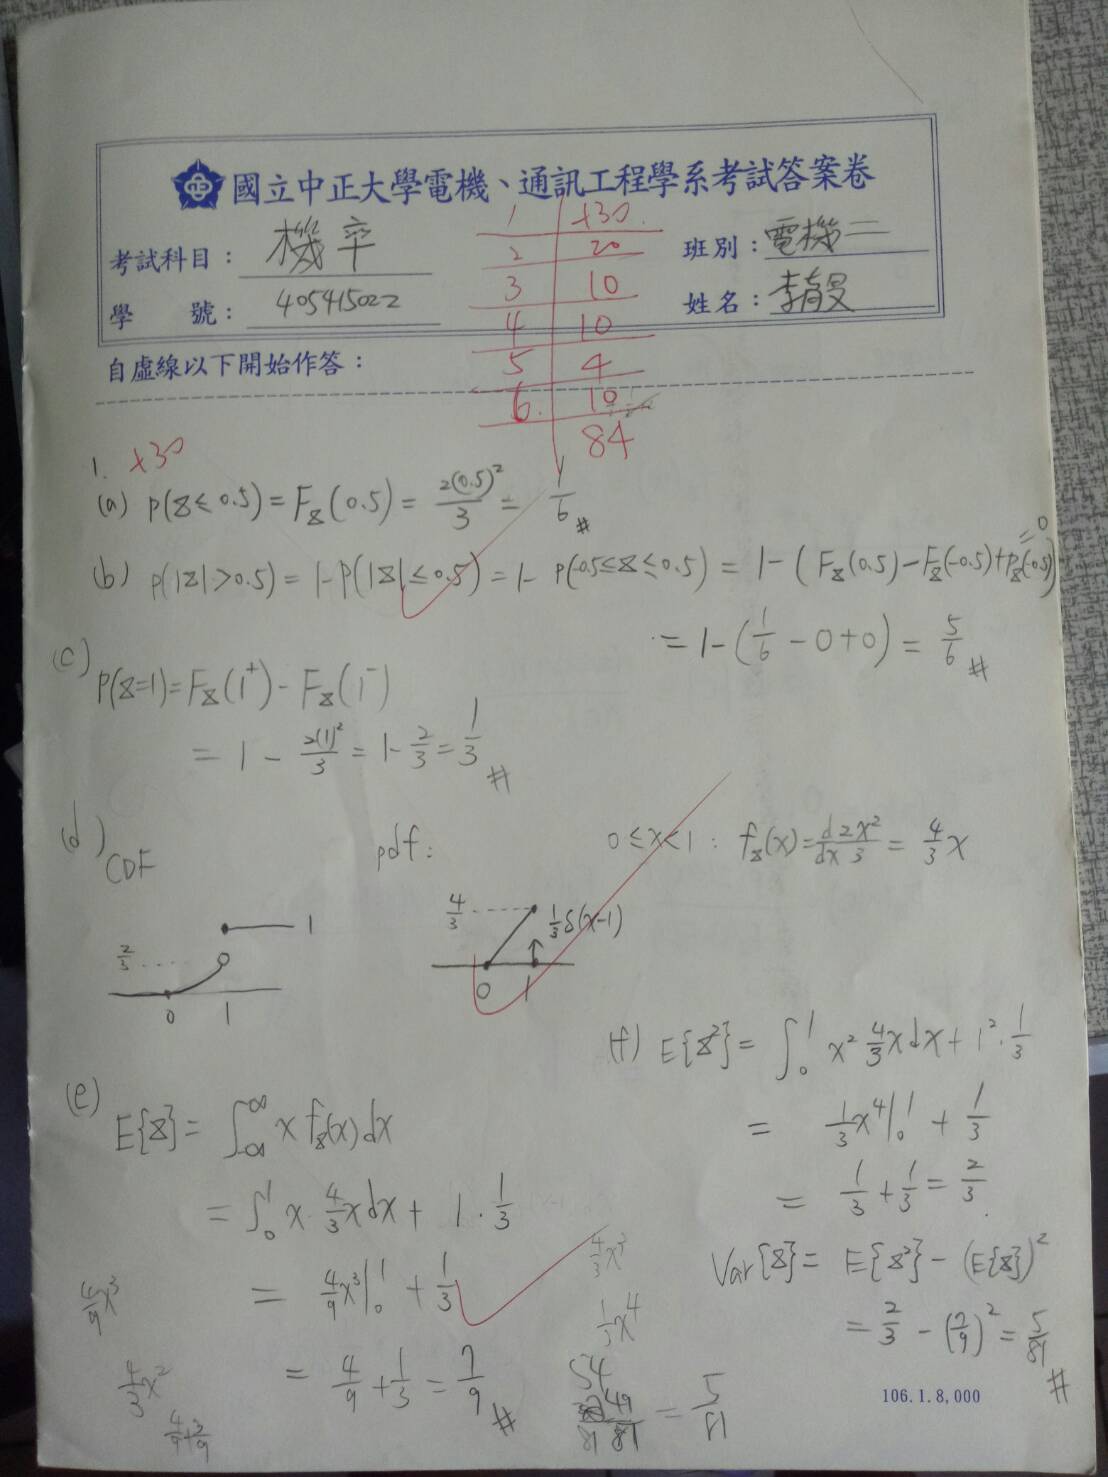 國立中正大學電機、通訊工程學系考試答案卷
考試科目： 機率
班別： 電機二
學號： 405415022
姓名： 李
自虛線以下開始作答：
1 +30
2 20
3 10
4 10
5 4
6. 10
84
1. +30
(a) P(X ≤ 0.5) = F_X(0.5) = 2(0.5)²/3 = 1/6 #
(b) P(|X| > 0.5) = 1 - P(|X| ≤ 0.5) = 1 - P(-0.5 ≤ X ≤ 0.5) = 1 - (F_X(0.5) - F_X(-0.5) + P_X(-0.5)) = 0
= 1 - (1/6 - 0 + 0) = 5/6 #
(c) P(X=1) = F_X(1⁺) - F_X(1⁻)
= 1 - 2(1)²/3 = 1 - 2/3 = 1/3 #
(d) CDF
2/3
1
0 1
pdf:
4/3
1/3 δ(x-1)
0 1
0 ≤ x < 1 : f_X(x) = d/dx 2x²/3 = 4/3 x
(e) E{X} = ∫_{-∞}^{∞} x f_X(x) dx
= ∫₀¹ x · 4/3 x dx + 1 · 1/3
= 4/9 x³|₀¹ + 1/3
= 4/9 + 1/3 = 7/9 #
4/9 x³
4/3 x²
4/9 + 3/9
(f) E{X²} = ∫₀¹ x² 4/3 x dx + 1² · 1/3
= 1/3 x⁴|₀¹ + 1/3
= 1/3 + 1/3 = 2/3.
Var{X} = E{X²} - (E{X})²
= 2/3 - (7/9)² = 5/81 #
4/3 x³
1/3 x⁴
54
49/81 = 5/81
106.1.8,000